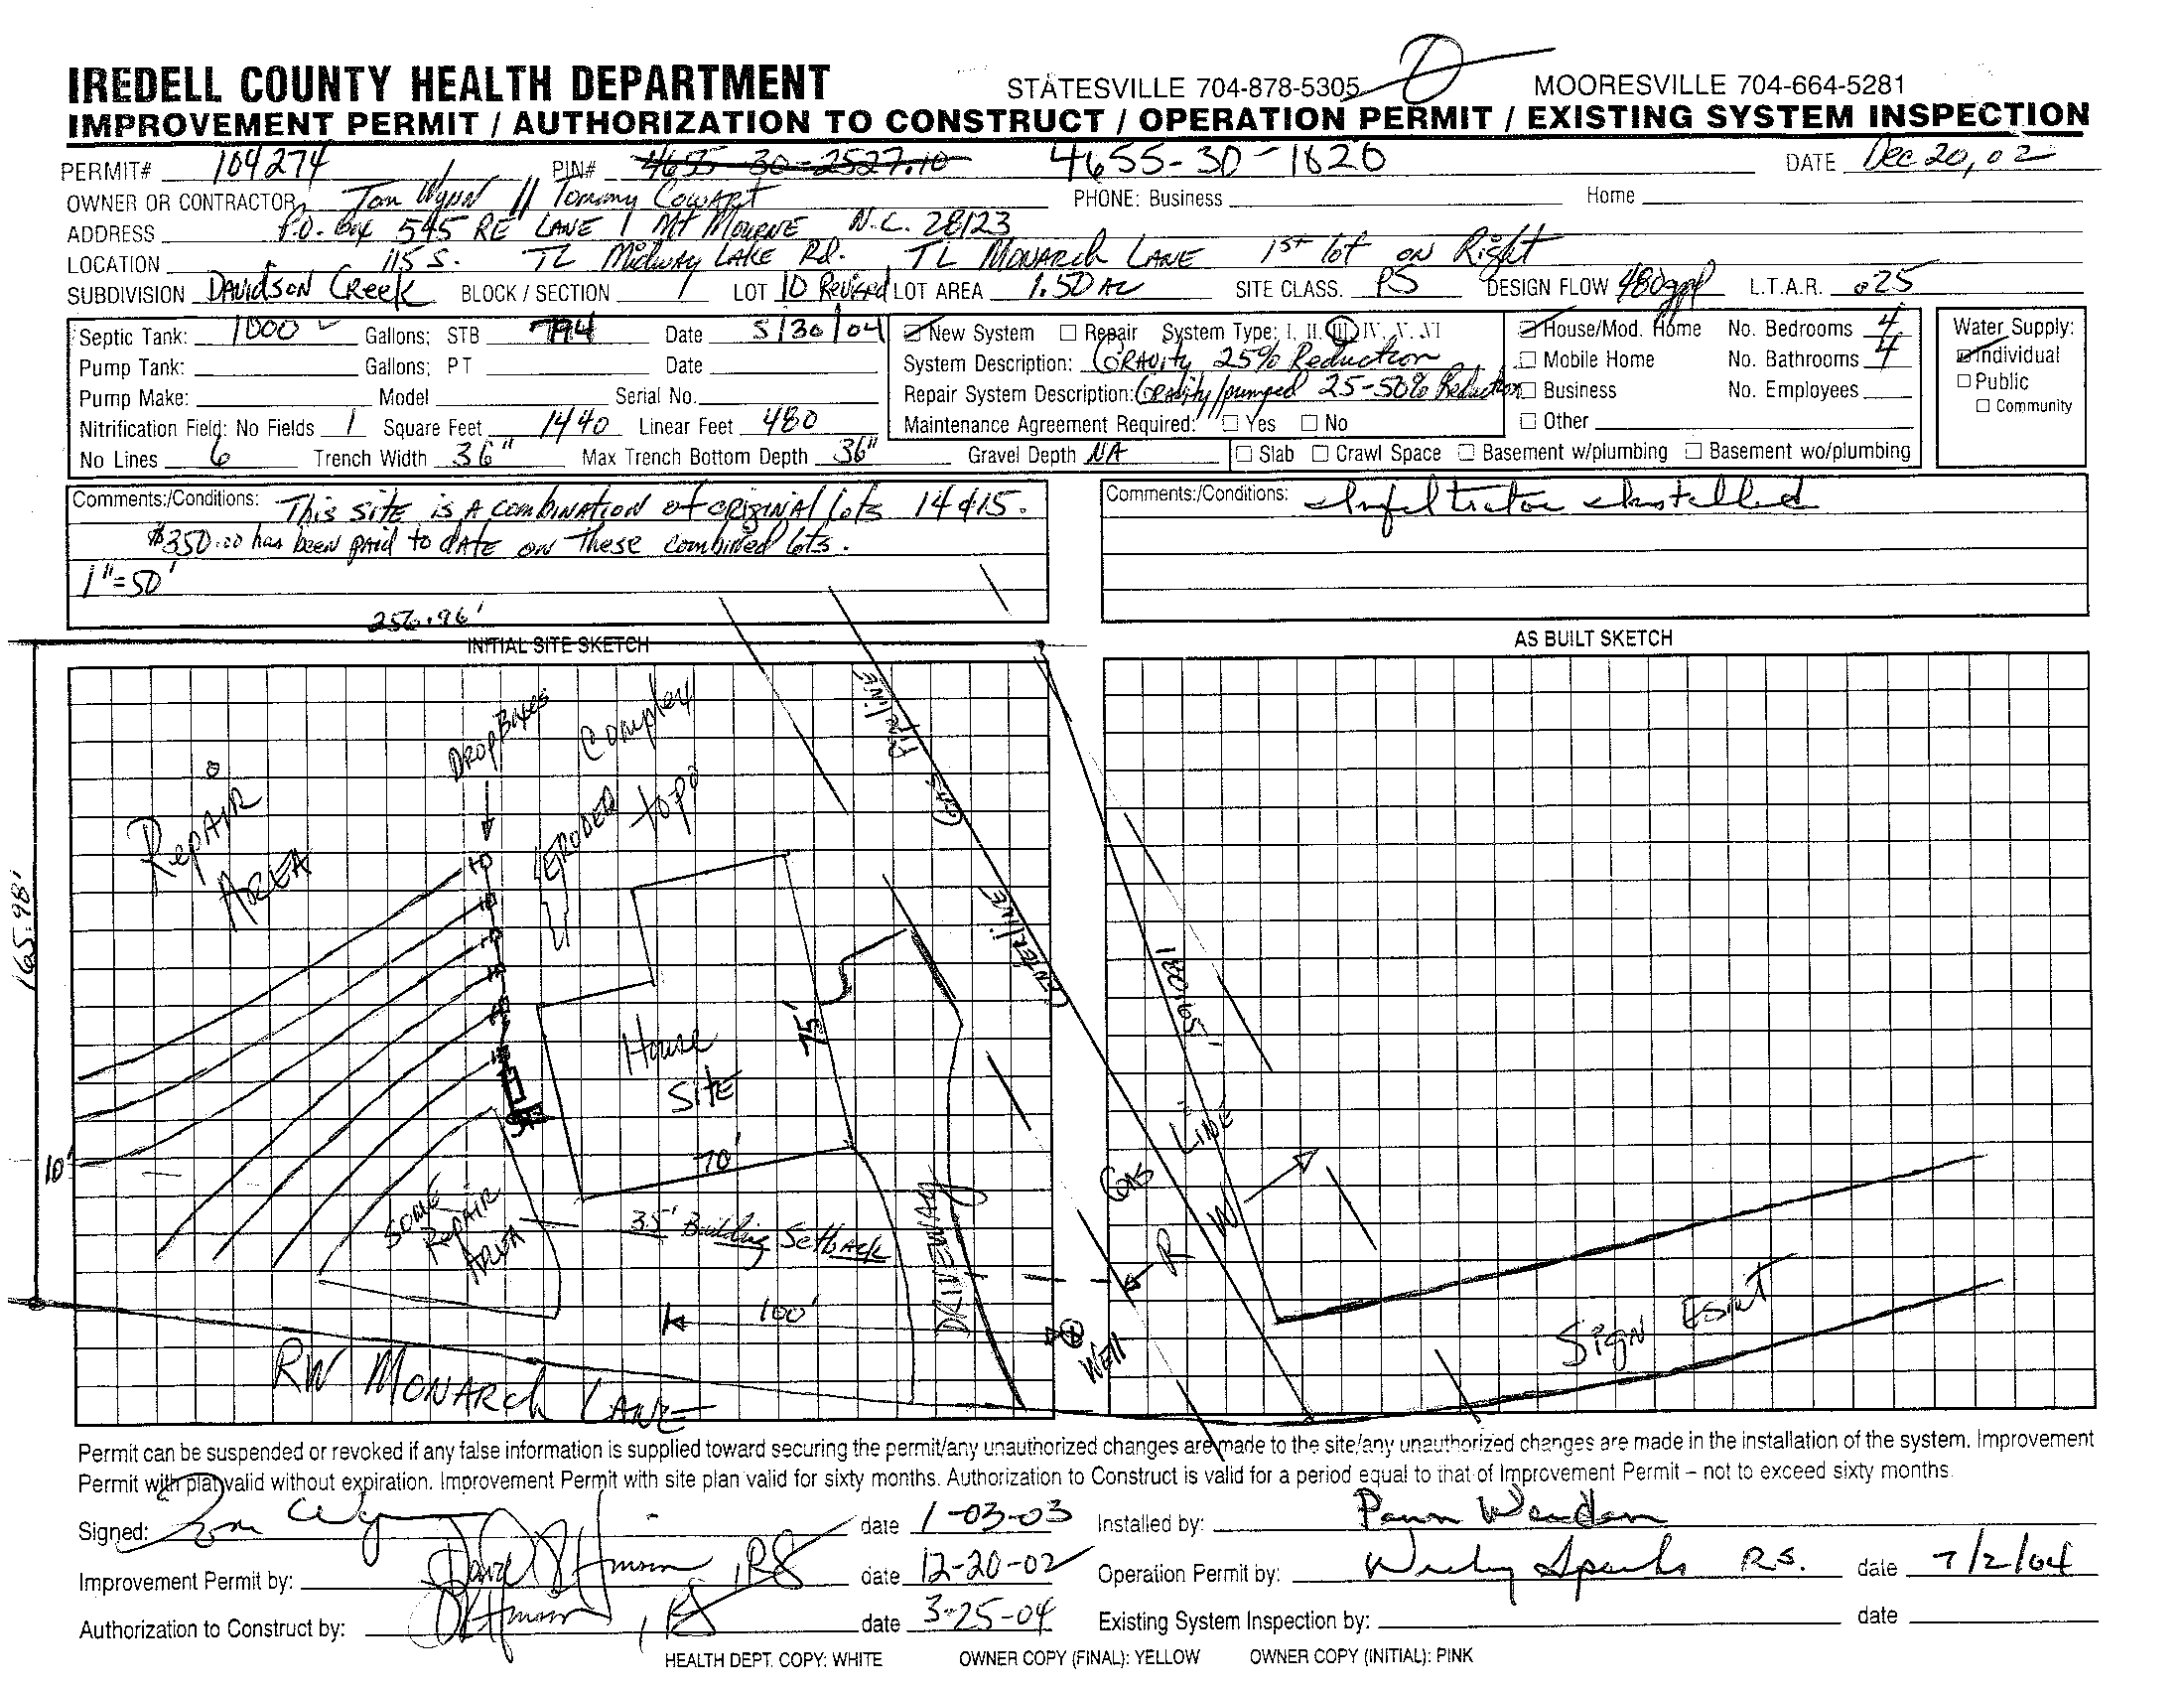 IREDELL COUNTY HEALTH DEPARTMENT STATESVILLE 704-878-5305 MOORESVILLE 704-664-5281
IMPROVEMENT PERMIT / AUTHORIZATION TO CONSTRUCT / OPERATION PERMIT / EXISTING SYSTEM INSPECTION
PERMIT# 109274 PIN# 4655-30-2527.10 4655-30-1820 DATE Dec 20, 02
OWNER OR CONTRACTOR Tom Wynn // Tommy Cowart PHONE: Business Home
ADDRESS P.O. Box 545 RE LANE / Mt Mourne N.C. 28123
LOCATION 115 S. TL Midway Lake Rd. TL Monarch Lane 1st lot on Right
SUBDIVISION Davidson Creek BLOCK / SECTION 1 LOT 10 Revised LOT AREA 1.50 AC SITE CLASS. PS DESIGN FLOW 480gpd L.T.A.R. .025
Septic Tank: 1000 Gallons; STB 794 Date 5/30/04
Pump Tank: Gallons; PT Date
Pump Make: Model Serial No.
Nitrification Field: No Fields 1 Square Feet 1440 Linear Feet 480
No Lines 6 Trench Width 36" Max Trench Bottom Depth 36" Gravel Depth NA
New System Repair System Type; I, II, III, IV, V, VI
System Description: Gravity 25% Reduction
Repair System Description: Gravity/pumped 25-50% Reduction
Maintenance Agreement Required: Yes No
House/Mod. Home No. Bedrooms 4
Mobile Home No. Bathrooms 4
Business No. Employees
Other
Slab Crawl Space Basement w/plumbing Basement wo/plumbing
Water Supply:
Individual
Public
Community
Comments:/Conditions: This site is a combination of original lots 14 & 15.
$350.00 has been paid to date on these combined lots.
1"=50'
Comments:/Conditions: Infiltrator Installed
256.96'
INITIAL SITE SKETCH
AS BUILT SKETCH
Repair
Area
Drop Boxes
Complex
Eroded topo
Pipeline
Gas
Centerline
165.98'
10'
House
Site
75'
70'
Some
Repair
Area
35' Building Setback
Driveway
100'
Well
RW Monarch Lane
Gas Line
R W
Sign Esmt
Permit can be suspended or revoked if any false information is supplied toward securing the permit/any unauthorized changes are made to the site/any unauthorized changes are made in the installation of the system. Improvement
Permit with plat valid without expiration. Improvement Permit with site plan valid for sixty months. Authorization to Construct is valid for a period equal to that of Improvement Permit – not to exceed sixty months.
Signed: Tom Wynn date 1-03-03 Installed by:
Improvement Permit by: RS date 12-20-02 Operation Permit by: R.S. date 7/2/04
Authorization to Construct by: RS date 3-25-04 Existing System Inspection by: date
HEALTH DEPT. COPY: WHITE OWNER COPY (FINAL): YELLOW OWNER COPY (INITIAL): PINK